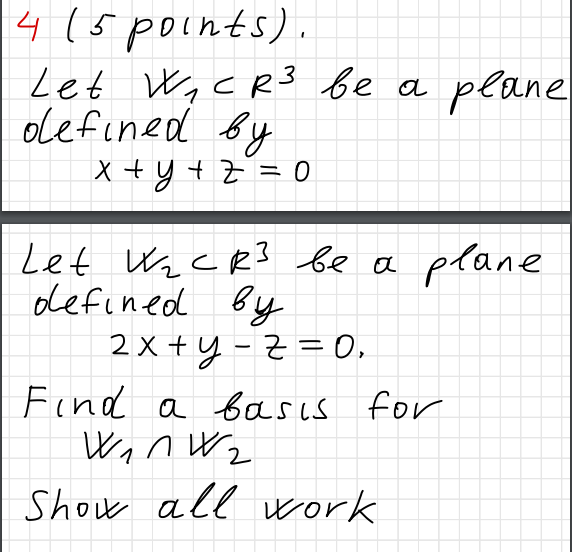 4 (5 points).
Let W₁ ⊂ R³ be a plane
defined by
x + y + z = 0
Let W₂ ⊂ R³ be a plane
defined by
2x + y - z = 0.
Find a basis for
W₁ ∩ W₂
Show all work